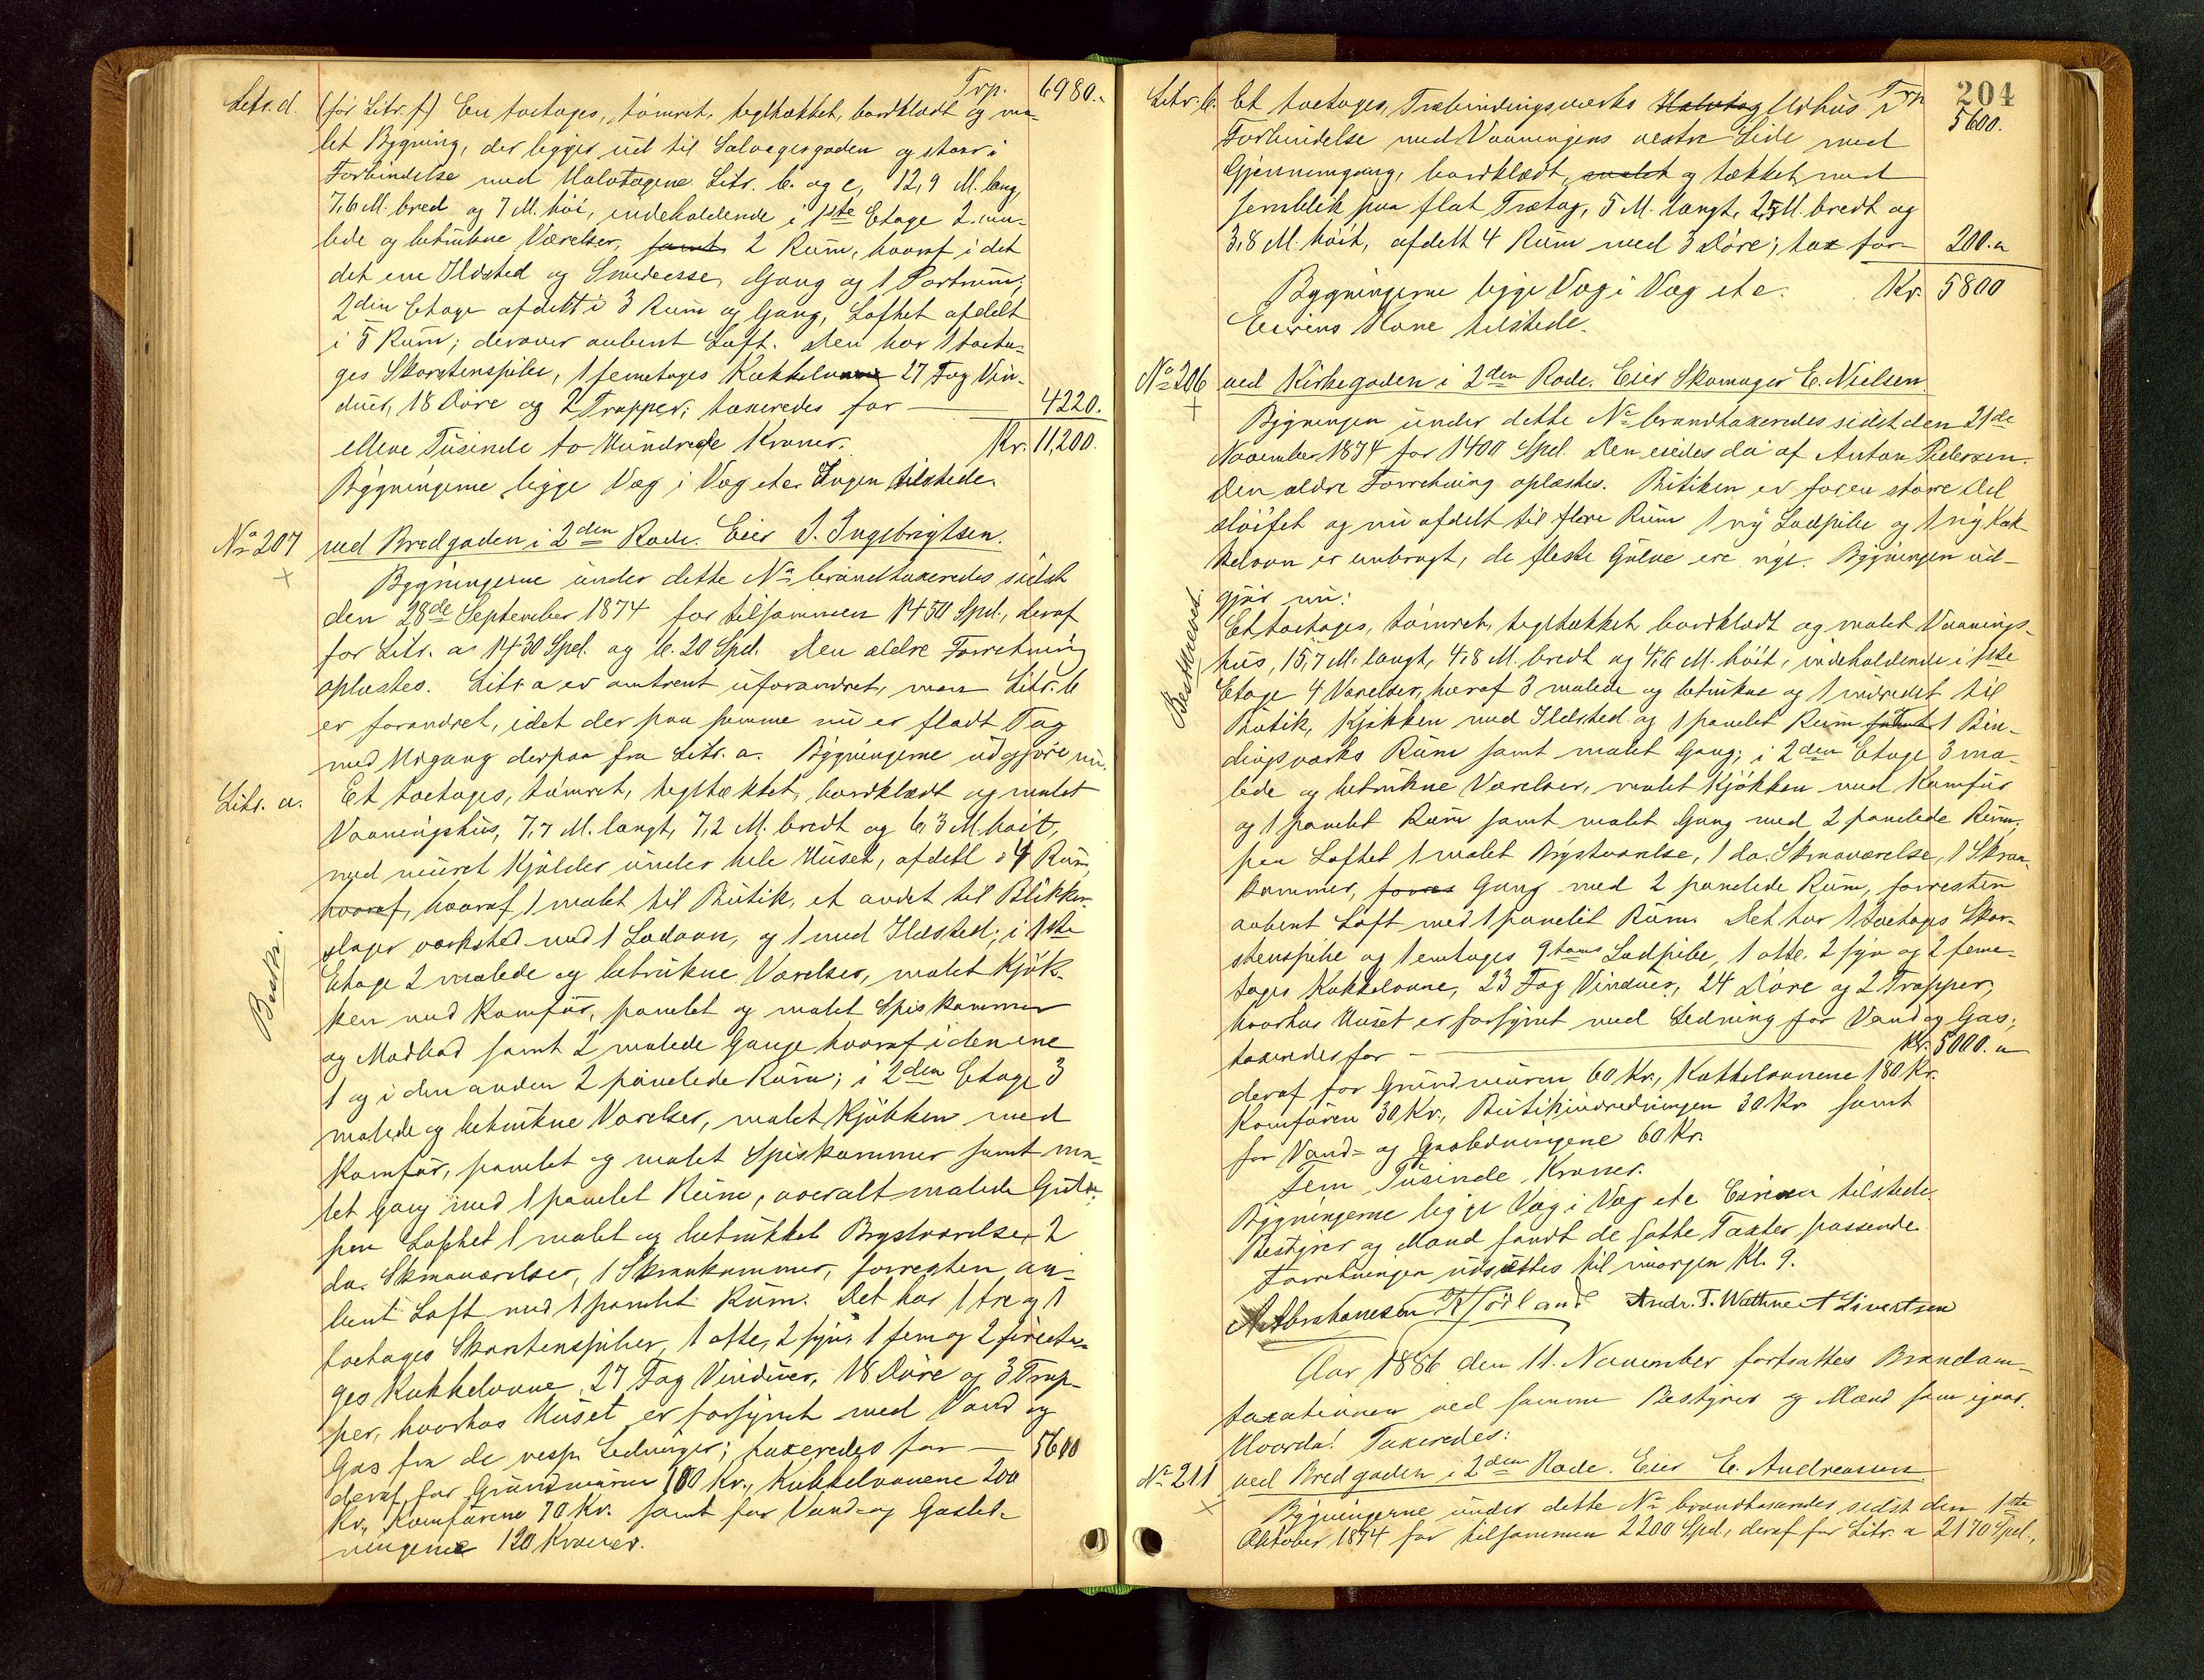 Trp. 6980.
Litr. d. (før Litr. f) En toetages, tømret, teglhækket, bordklædt og ma-
let Bygning, der ligger ud til Salvagergaden og staar i
Forbindelse med Halvtagene Litr. b. og e, 12,9 M. lang,
7,6 M. bred og 7 M. høi, indeholdende i 1ste Etage 2 ma-
lede og betrukne Værelser, samt 2 Rum, hvoraf i det
det ene Ildsted og Smedeesse, Gang og 1 Portrum;
2den Etage afdelt i 3 Rum og Gang, Loftet afdelt
i 5 Rum; derover aabent Loft. Den har 1 toeta-
ges Skorstenspibe, 1 femetages Kakkelovn 27 Fag Vin-
duer, 18 Døre og 2 Trapper; taxeredes for — 4220.
elleve Tusinde to Hundrede Kroner. Kr. 11,200.
Bygningerne ligge Væg i Væg etc. Ingen tilstede.
No 207 ved Bredgaden i 2den Rode. Eier I. Ingebrigtsen.
Bygningerne under dette No brandtaxeredes sidst
den 28de September 1874 for tilsammen 1450 Spd., deraf
for Litr. a 1430 Spd. og b. 20 Spd. Den ældre Forretning
oplæstes. Litr. a er omtrent uforandret, men Litr. b
er forandret, idet der paa samme nu er fladt Tag
med Udgang derpaa fra Litr. a. Bygningerne udgjøre nu:
Litr. a. Et toetages, tømret, teglhækket, bordklædt og malet
Vaaningshus, 7,7 M. langt, 7,2 M. bredt og 6,3 M. høit,
med muret Kjelder under hele Huset, afdelt i 4 Rum,
hvoraf, hvoraf 1 malet til Butik, et andet til Blikken-
slager værksted med 1 Lodovn, og 1 med Ildsted; i 1ste
Beskr.
Etage 2 malede og betrukne Værelser, malet Kjøk-
ken med Komfur, panelet og malet Spiskammer
og Madbod samt 2 malede Gange hvoraf i den ene
1 og i den anden 2 panelede Rum; i 2den Etage 3
malede og betrukne Værelser, malet Kjøkken med
Komfur, panelet og malet Spiskammer samt ma-
let Gang med 1 panelet Rum, overalt malede Gulve
paa Loftet 1 malet og betrukket Brystværelse, 2
do. Skraaværelser, 1 Skraakammer, forresten aa-
bent Loft med 1 panelet Rum. Det har 1 tre og 1
toetages Skorstenspiber, 1 otte, 2 syv, 1 fem og 2 fireeta-
ges Kakkelovne, 27 Fag Vinduer, 18 Døre og 3 Trap-
per, hvorhos Huset er forsynet med Vand og
Gas fra de resp. Ledninger; taxeredes for — 5600
deraf for Grundmuren 100 Kr., Kakkelovnene 200
Kr., Komfurene 70 Kr. samt for Vand- og Gasled-
ningerne 120 Kroner.
204
Trp 5600.
Litr. b. Et toetages, Træbindingsværks Halvtag Udhus i
Forbindelse med Vaaningens vestre Side med
Gjennemgang, bordklædt, malet og tækket med
Jernblik paa flat Trætag, 5 M. langt, 2,5 M. bredt og
3,8 M. høit, afdelt 4 Rum med 3 Døre; tax for 200. "
Bygningerne ligge Væg i Væg etc. Kr. 5800
Eierens Kone tilstede.
No 206 ved Kirkegaden i 2den Rode. Eier Skomager E. Nielsen
Bygningen under dette No brandtaxeredes sidst den 21de
November 1874 for 1400 Spd. Den eiedes da af Anton Pedersen.
Den ældre Forretning oplæstes. Butiken er for en større Del
sløifet og nu afdelt til flere Rum 1 ny Ladpibe og 1 ny Kak-
kelovn er anbragt, de fleste Gulve ere nye. Bygningen ud-
gjør nu:
Beskrevet.
Et toetages, tømret, teglhækket, bordklædt og malet Vaanings-
hus, 15,7 M. langt, 4,8 M. bredt og 4,6 M. høit, indeholdende i 1ste
Etage 4 Værelser, heraf 3 malede og betrukne og 1 indredet til
Butik, Kjøkken med Ildsted og 1 panelet Rum samt 1 Bin-
dingsværks Rum samt malet Gang; i 2den Etage 3 ma-
lede og betrukne Værelser, malet Kjøkken med Komfur
og 1 panelet Rum samt malet Gang med 2 panelede Rum;
paa Loftet 1 malet Brystværelse, 1 do. Skraaværelse, 1 Skraa-
kammer, forres Gang med 2 panelede Rum, forresten
aabent Loft med 1 panelet Rum. Det har 1 toetages Skor-
stenspibe og 1 enetages 9toms Ladpibe, 1 otte, 2 syv og 2 feme-
tages Kakkelovne, 23 Fag Vinduer, 24 Døre og 2 Trapper,
hvorhos Huset er forsynet med Ledning for Vand og Gas;
taxeredes for — Kr. 5000. "
deraf for Grundmuren 60 Kr., Kakkelovnene 180 Kr.
Komfuren 30 Kr., Butikindredningen 30 Kr. samt
for Vand- og Gasledningene 60 Kr.
Fem Tusinde Kroner.
Bygningerne ligge Væg i Væg etc Eieren tilstede
Bestyrer og Mænd fandt de satte Taxter passende
Forretningen udsattes til imorgen Kl. 9.
A Abrahamsen K Tödland Andr. T. Wathne A Sivertsen
Aar 1886 den 11. November fortsattes Brandom-
taxationen ved samme Bestyrer og Mænd som igaar.
Hvorda! Taxeredes:
No 211 ved Bredgaden i 2den Rode. Eier E. Andreasen
Bygningerne under dette No brandtaxeredes sidst den 1ste
Oktober 1874 for tilsammen 2200 Spd., deraf for Litr. a 2170 Spd.,